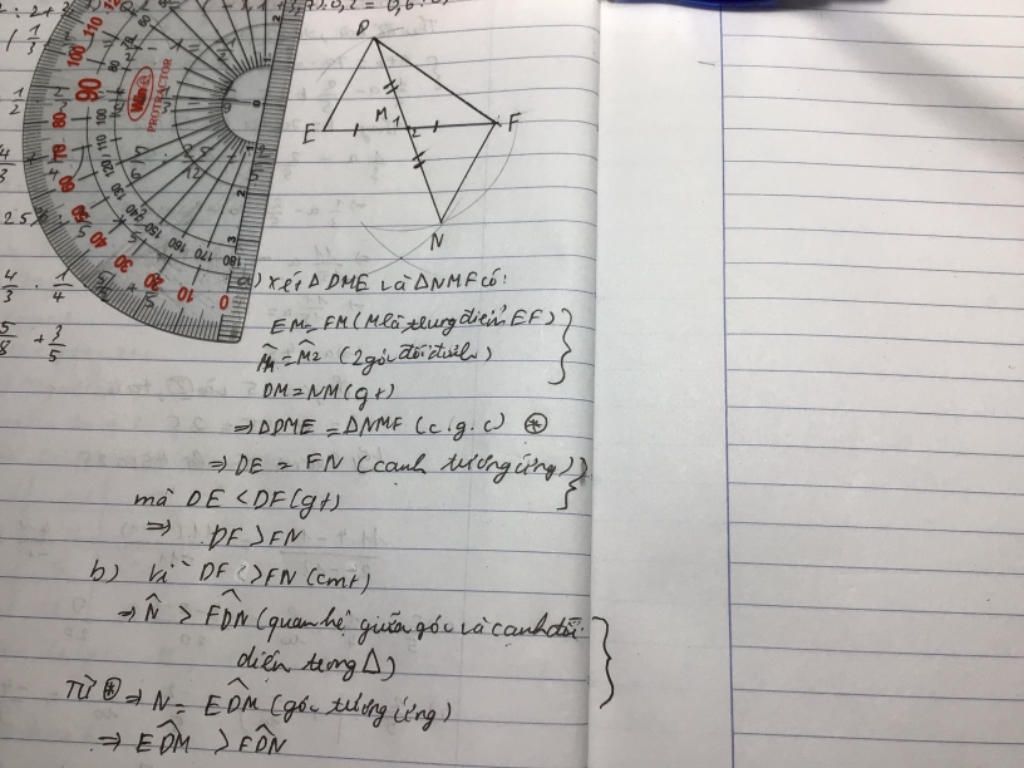 D
E
M 1
2
F
N
PROTRACTOR
) Xét ΔDME và ΔNMF có:
EM = FM (M là trung điểm EF)
M̂1 = M̂2 (2 góc đối đỉnh)
DM = NM (gt)
⇒ ΔDME = ΔNMF (c.g.c) ⊛
⇒ DE = FN (cạnh tương ứng)
mà DE < DF (gt)
⇒ DF > FN
b) Vì DF > FN (cmt)
⇒ N̂ > FD̂N (quan hệ giữa góc và cạnh đối
diện trong Δ)
Từ ⊛ ⇒ N = ED̂M (góc tương ứng)
⇒ ED̂M > FD̂N